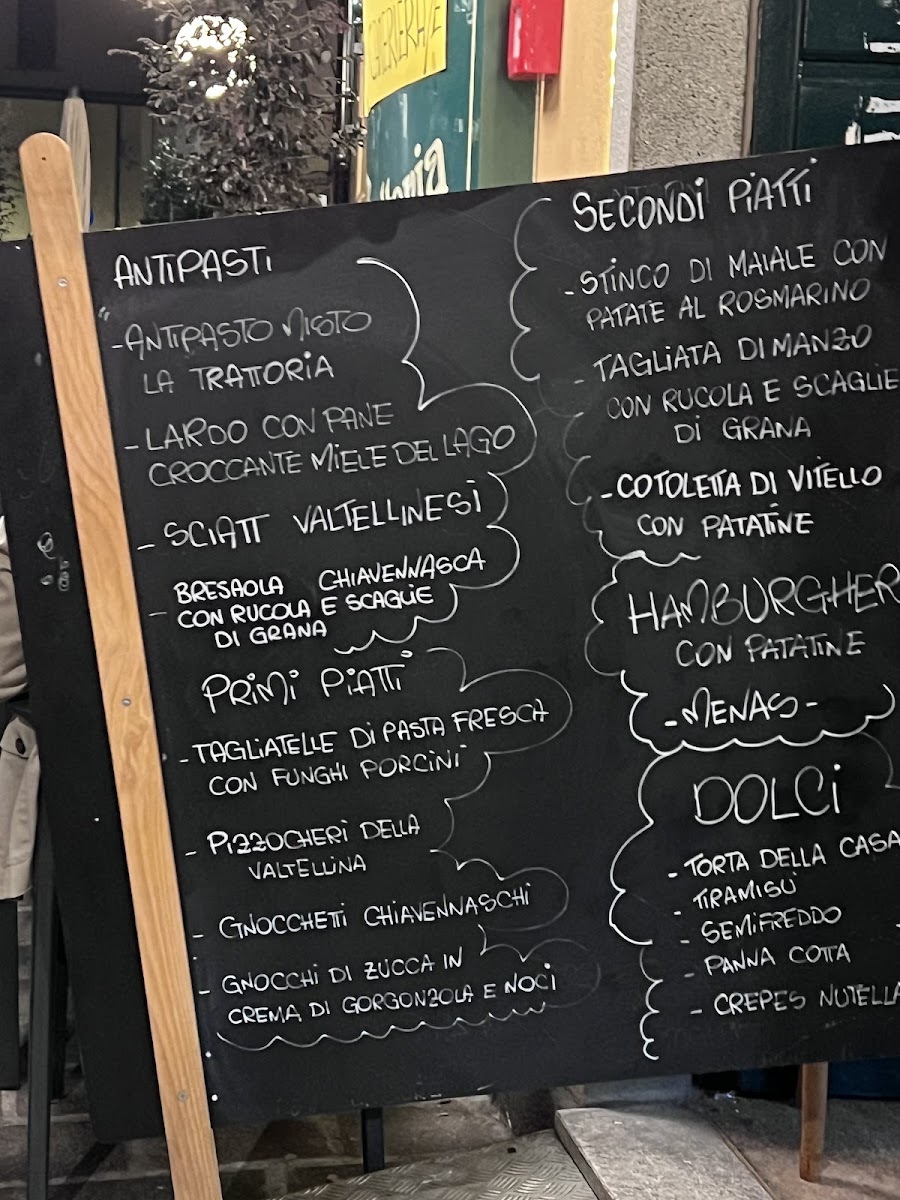 ANTIPASTI
- ANTIPASTO MISTO
LA TRATTORIA
- LARDO CON PANE
CROCCANTE MIELE DEL LAGO
- SCIATT VALTELLINESI
- BRESAOLA CHIAVENNASCA
CON RUCOLA E SCAGLIE
DI GRANA
PRIMI PIATTI
- TAGLIATELLE DI PASTA FRESCA
CON FUNGHI PORCINI
- PIZZOCHERI DELLA
VALTELLINA
- GNOCCHETTI CHIAVENNASCHI
- GNOCCHI DI ZUCCA IN
CREMA DI GORGONZOLA E NOCI
SECONDI PIATTI
- STINCO DI MAIALE CON
PATATE AL ROSMARINO
- TAGLIATA DI MANZO
CON RUCOLA E SCAGLIE
DI GRANA
- COTOLETTA DI VITELLO
CON PATATINE
HAMBURGHER
CON PATATINE
- MENAS -
DOLCI
- TORTA DELLA CASA
- TIRAMISÙ
- SEMIFREDDO
- PANNA COTTA
- CREPES NUTELLA